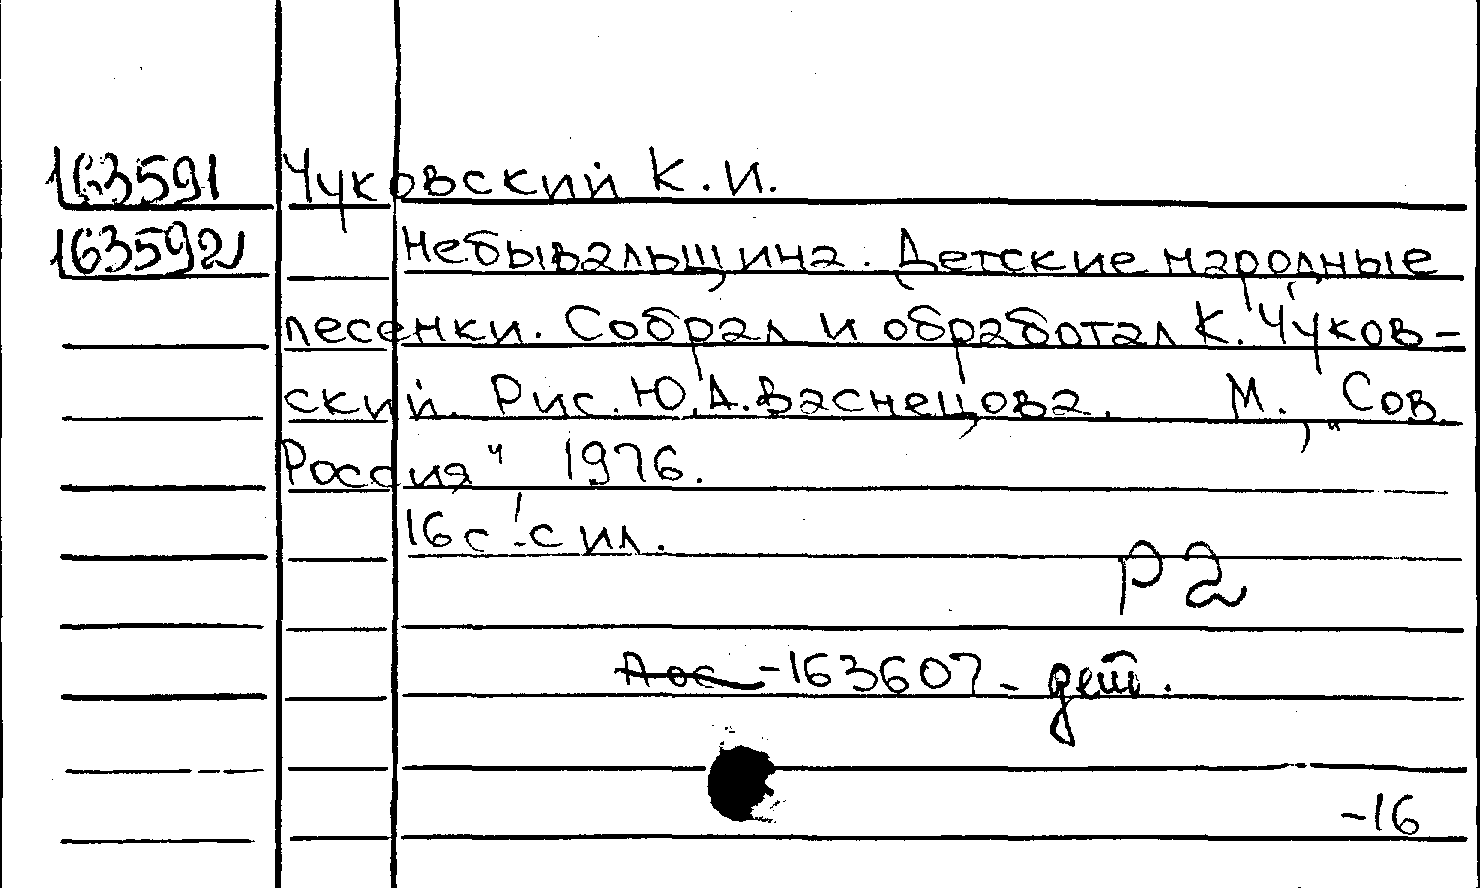 163591 Чуковский К.И.
163592 Небывальщина. Детские народные
песенки. Собрал и обработал К. Чуков-
ский. Рис. Ю.А. Васнецова. М., "Сов.
Россия" 1976.
16с. с ил.
Р2
-163607- дет.
-16